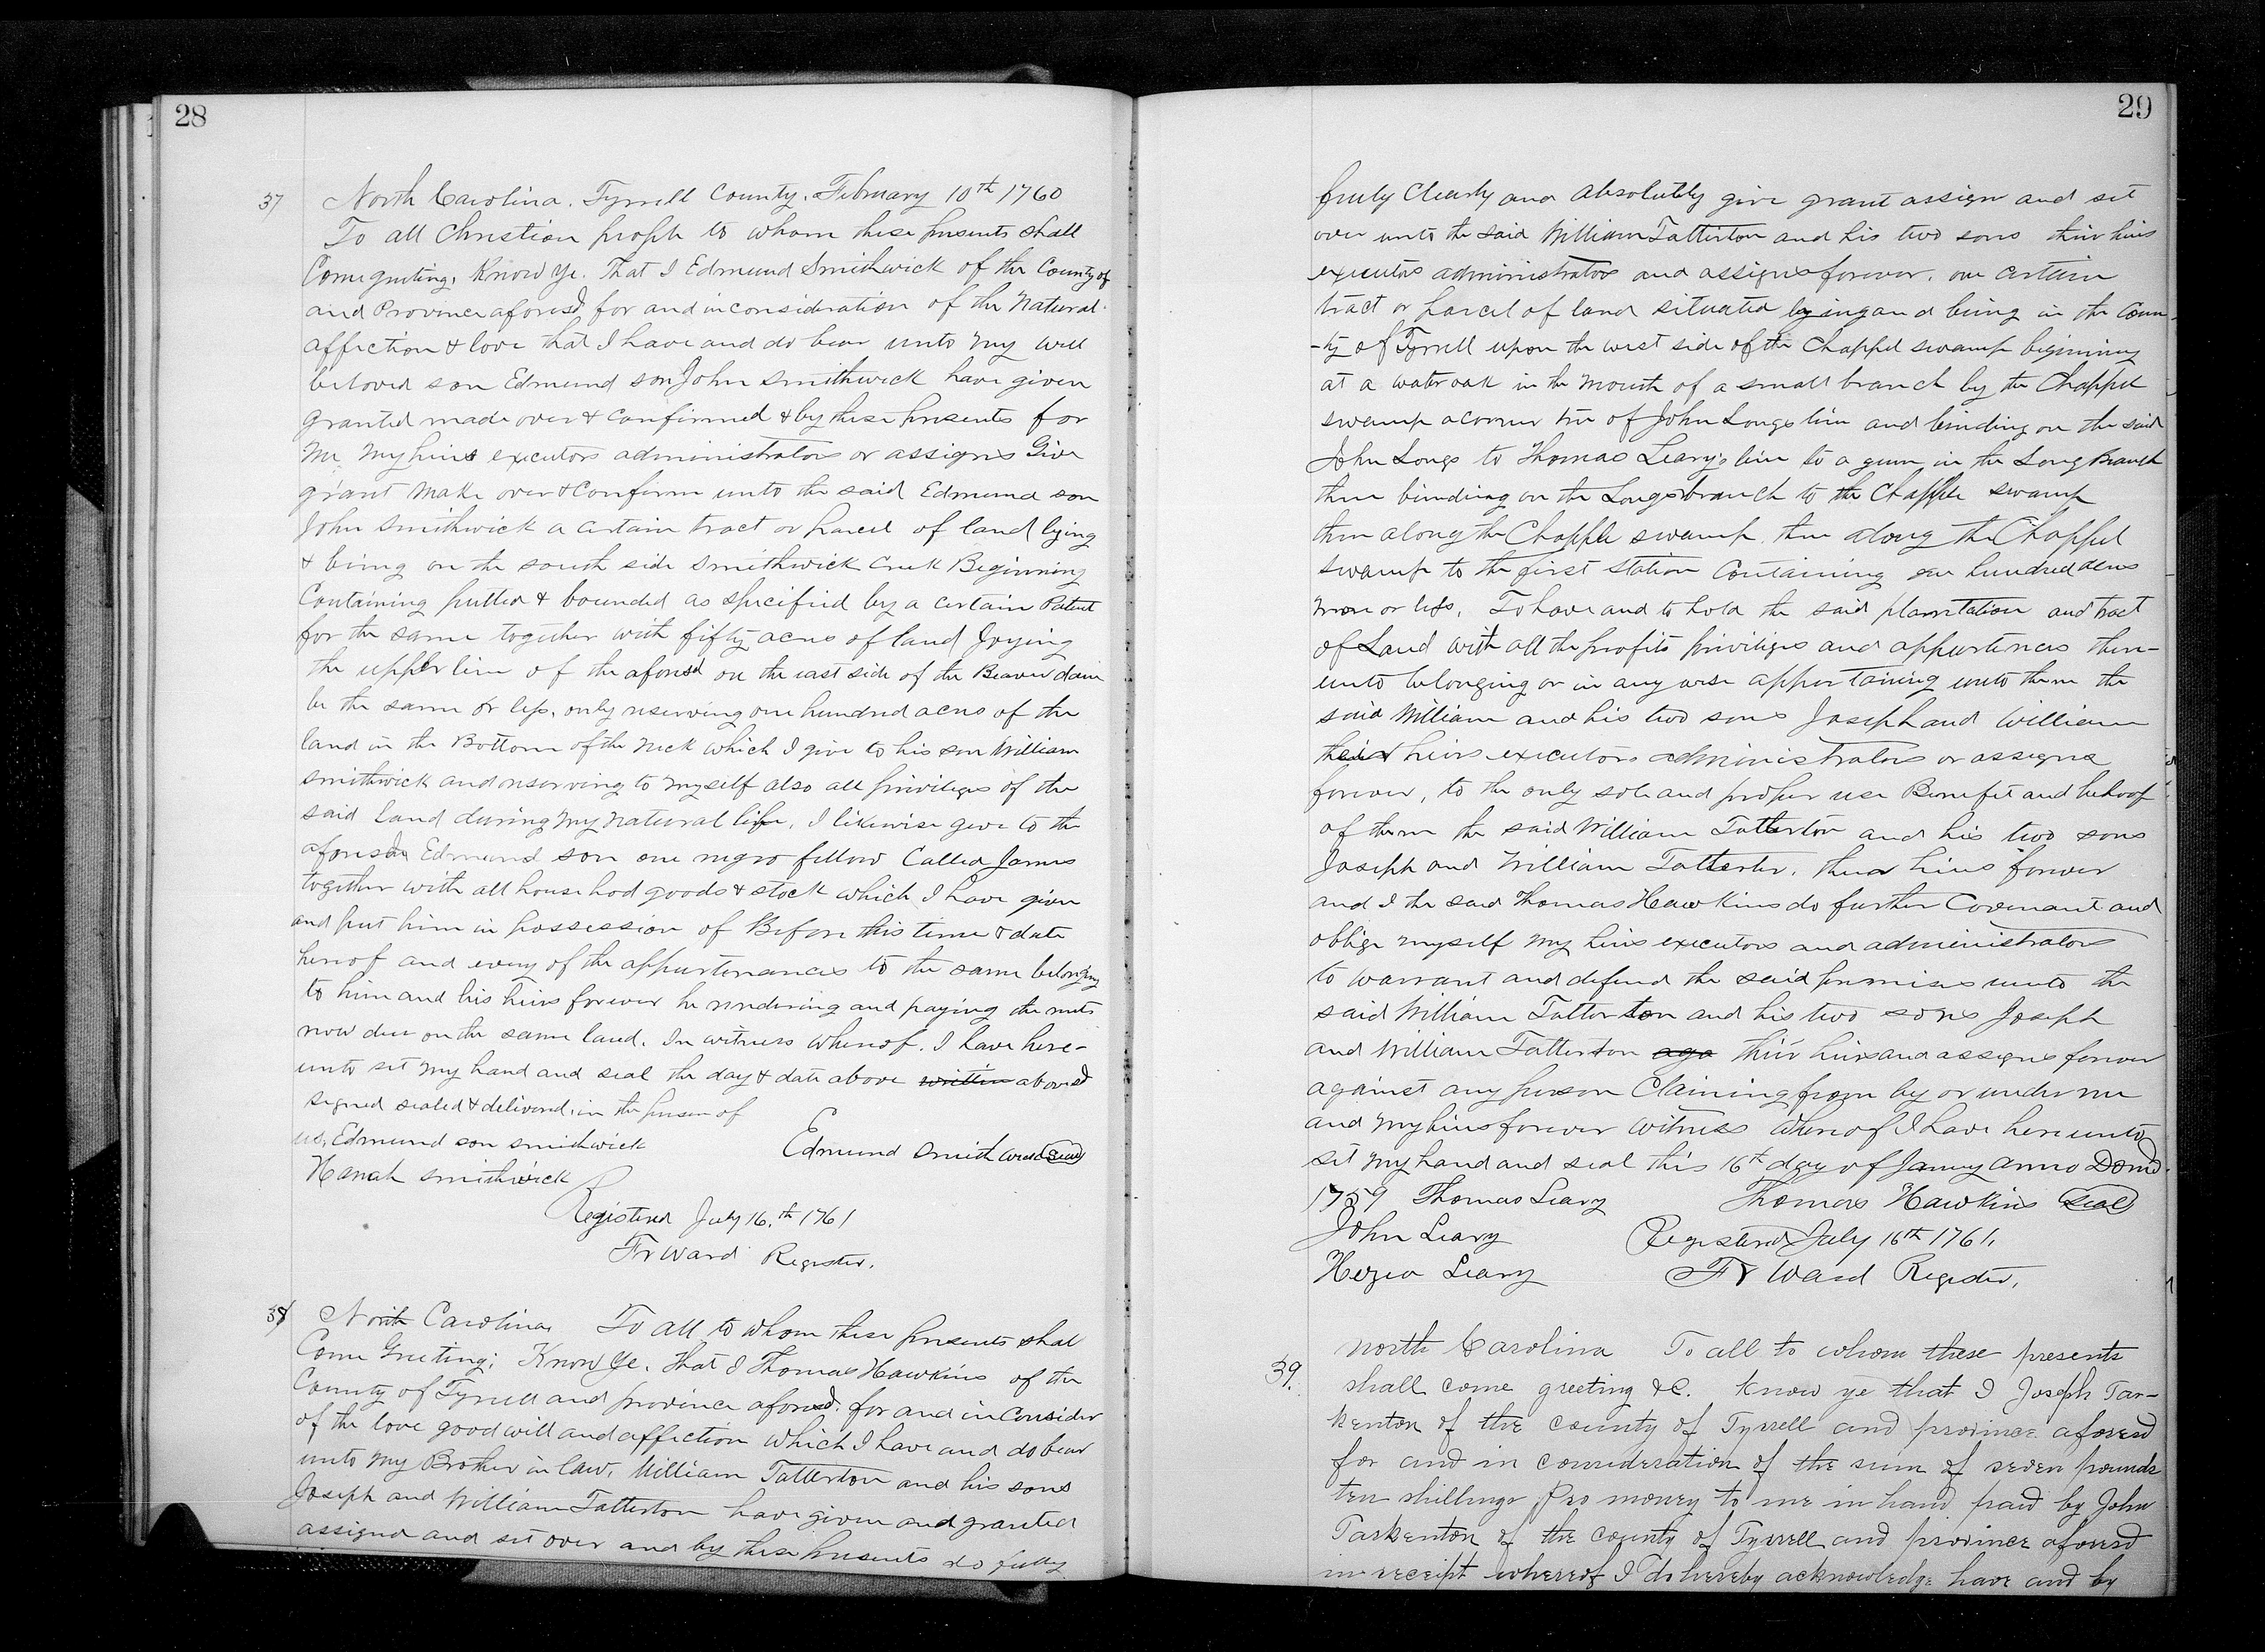 28
37 North Carolina. Tyrrell County. February 10th 1760
To all Christian people to whom these presents shall
Come greeting, Know Ye. That I Edmund Smithwick of the County of
and Province aforesd for and in consideration of the Natural
affection & love that I have and do bear unto my well
beloved son Edmund son John Smithwick have given
granted made over & confirmed & by these presents for
me my heirs executors administrators or assigns Give
grant make over & Confirm unto the said Edmund son
John Smithwick a certain tract or parcel of land lying
& being on the south side Smithwick Creek Beginning
Containing butted & bounded as specified by a certain Patent
for the same together with fifty acres of land Joying
the upper line of the aforesd on the east side of the Beaver dam
be the same or less, only reserving one hundred acres of the
land in the Bottom of the neck which I give to his son William
Smithwick and reserving to myself also all priviliges of the
said land during my natural life, I likewise give to the
aforesd Edmund son one negro fellow Called James
together with all house hod goods & stock which I have given
and put him in possession of Before this time & date
hereof and every of the appurtenances to the same belonging
to him and his heirs forever he rendering and paying the rents
now due on the same land. In witness whereof. I have here-
unto set my hand and seal the day & date above written abovesd
signed sealed & delivered in the presen of
us, Edmund son Smithwick Edmund Smithwick Seal
Hanah Smithwick
Registered July 16.th 1761
Fr Ward Register.
38 North Carolina To all to whom these presents shal
Come Greeting; Know Ye. that I Thomas Hawkins of the
County of Tyrrell and province aforesd. for and in Consider
of the love good will and affection which I have and do bear
unto my Brother in law, William Tatterton and his sons
Joseph and William Tatterton have given and granted
assigned and set over and by these presents do fully
29
freely Clearly and absolutely give grant assign and set
over unto the said William Tatterton and his two sons their heirs
executors administrators and assigns forever. one certain
tract or parcel of land situated lying and being in the Coun-
-ty of Tyrrell upon the west side of the Chappel swamp beginning
at a water oak in the mouth of a small branch by the Chappel
swamp a corner tree of John Longs line and binding on the said
John Longs to Thomas Leary's line to a gum in the Long Branch
then binding on the Longs branch to the Chapple swamp
then along the Chapple swamp. then along the Chappel
swamp to the first station Containing one hundred acres
more or less. To have and to hold the said plantation and tract
of Land with all the profits priviliges and appurtences there-
unto belonging or in any wise appertaining unto them the
said William and his two sons Joseph and William
their heirs executors administrators or assigns
forever, to the only sole and proper use Benefit and behoof
of them the said William Tatterton and his two sons
Joseph and William Tatterton. their heirs forever
and I the said Thomas Hawkins do further Covenant and
oblige myself my heirs executors and administrators
to warrant and defend the said premises unto the
said William Tatterton and his two sons Joseph
and William Tatterton aga their heirs and assigns forever
against any person Claiming from by or under me
and my heirs forever witness whereof I have hereunto
set my hand and seal this 16th day of Janury anno Domd.
1759 Thomas Leary Thomas Hawkins Seal
John Leary Registered July 16th 1761.
Hezia Leary Fr Ward Register.
39. North Carolina To all to whom these presents
shall come greeting &C. Know ye that I Joseph Tar-
kenton of the County of Tyrrell and province aforesd
for and in consideration of the sum of seven pounds
ten shillings Pro money to me in hand paid by John
Tarkenton of the county of Tyrrell and province aforesd
in receipt whereof I do hereby acknowledge have and by